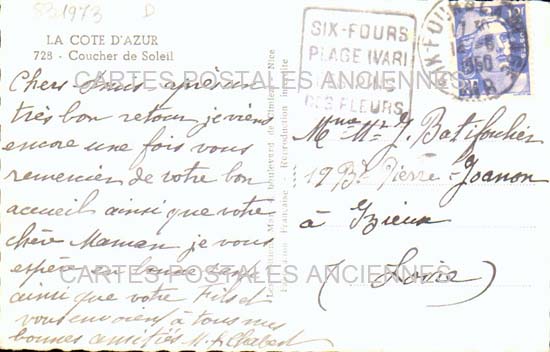 53.1973 D
LA COTE D'AZUR
728 - Coucher de Soleil
Chers amis après un
très bon retour je viens
encore une fois vous
remercier de votre bon
accueil ainsi que votre
chère Maman je vous
espère en bonne
ainsi que votre Fils et
vous envoient à tous mes
bonnes amitiés M. Chabert
SIX-FOURS
PLAGE (VAR)
DES FLEURS
SIX-FOURS
1950
VAR
Mme Mr J. Batifoulier
19 Bd Pierre-Joanon
à Izieux
(Loire)
Mar, boulevard de Nice
Française - Reproduction interdite
CARTES POSTALES ANCIENNES
CARTES POSTALES ANCIENNES